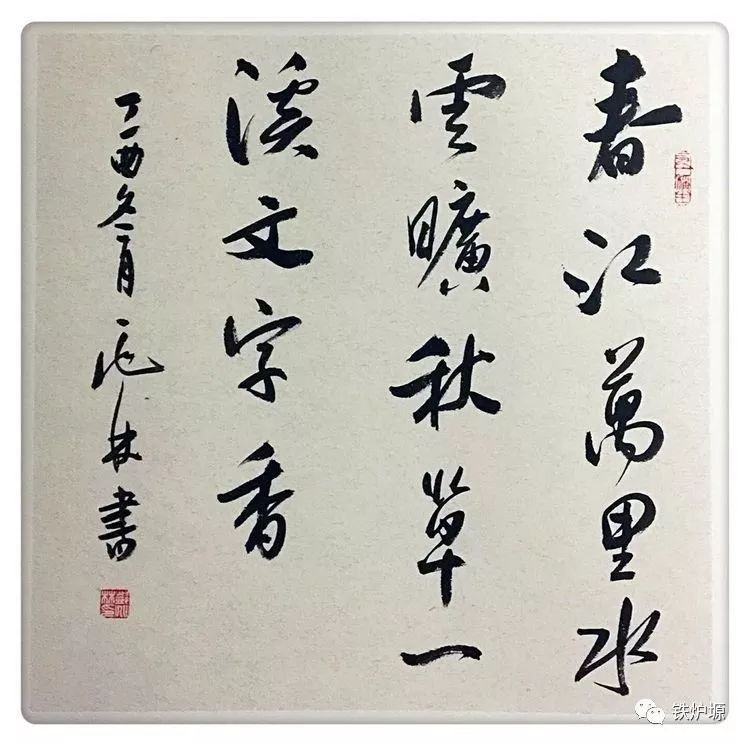 春江萬里水
雲曠秋草一
溪文字香
丁酉冬月
林書
铁炉塬